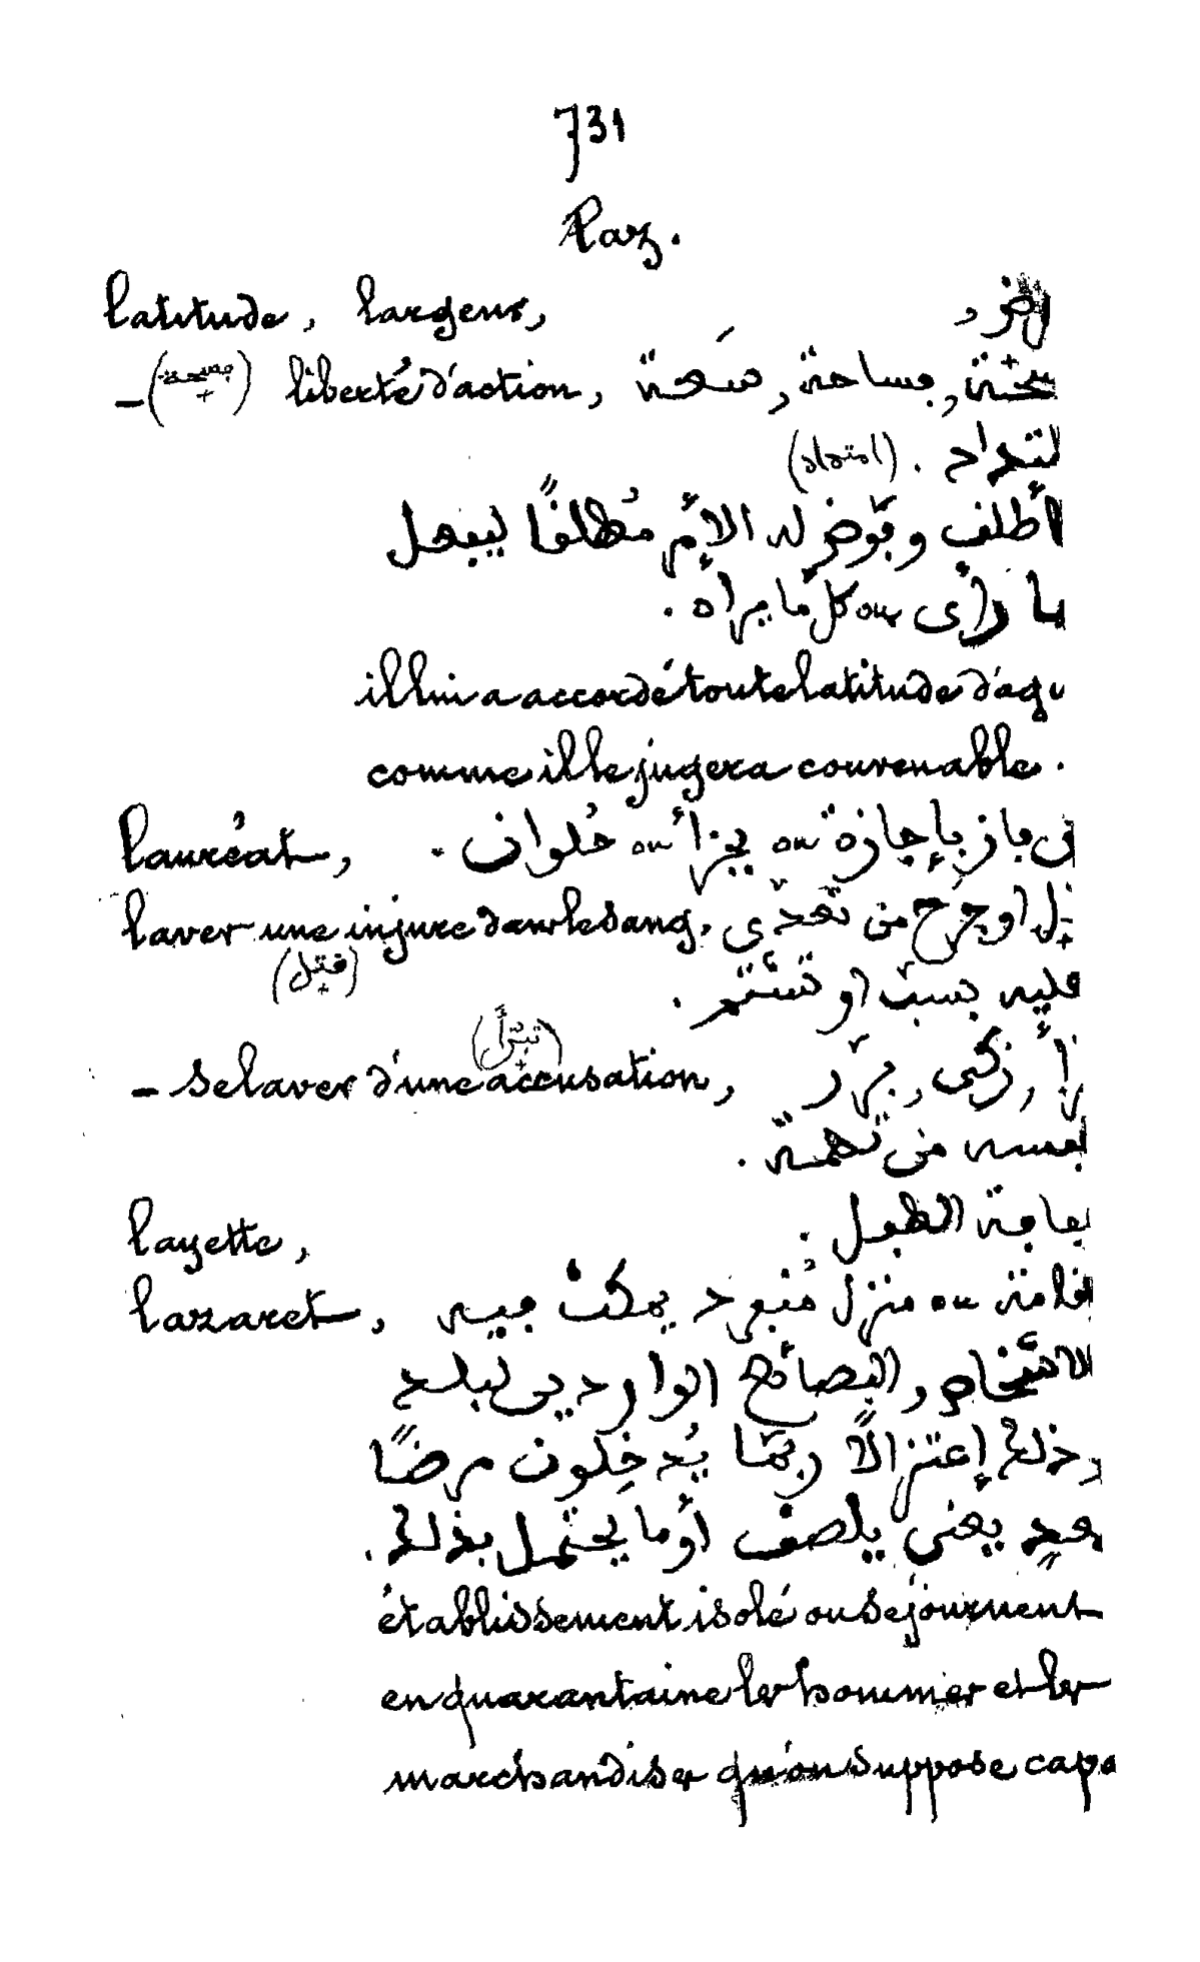 731
Laz.
latitude, largeur,
– (فسحة) liberté d'action, سَعة, مساحة, فسحة
(امتداد) .
أطلق وفوّض له الأمر مُطلقًا ليفعل
ما رأى ou كلّ ما يراه .
il lui a accordé toute latitude d'agi
comme il le jugera convenable.
lauréat, فاز بإجازة ou بجزاء ou حُلوان .
laver une injure dans le sang, او جرح من تعدّى
(قتل)
عليه بسبّ او شتم .
(تبرّأ)
– se laver d'une accusation, زكّى, برّر
نفسه من تهمة .
layette, الطفل .
lazaret, ou منزل مُنفرد يمكث فيه
الاشخاص والبضائع الواردين لبلد
وذلك إعتزالًا ربّما يُدخلون مرضًا
يعدي يعني يلصق أو ما يحتمل بذلك .
établissement isolé ou séjournent
en quarantaine les hommes et les
marchandises qu'on suppose capa